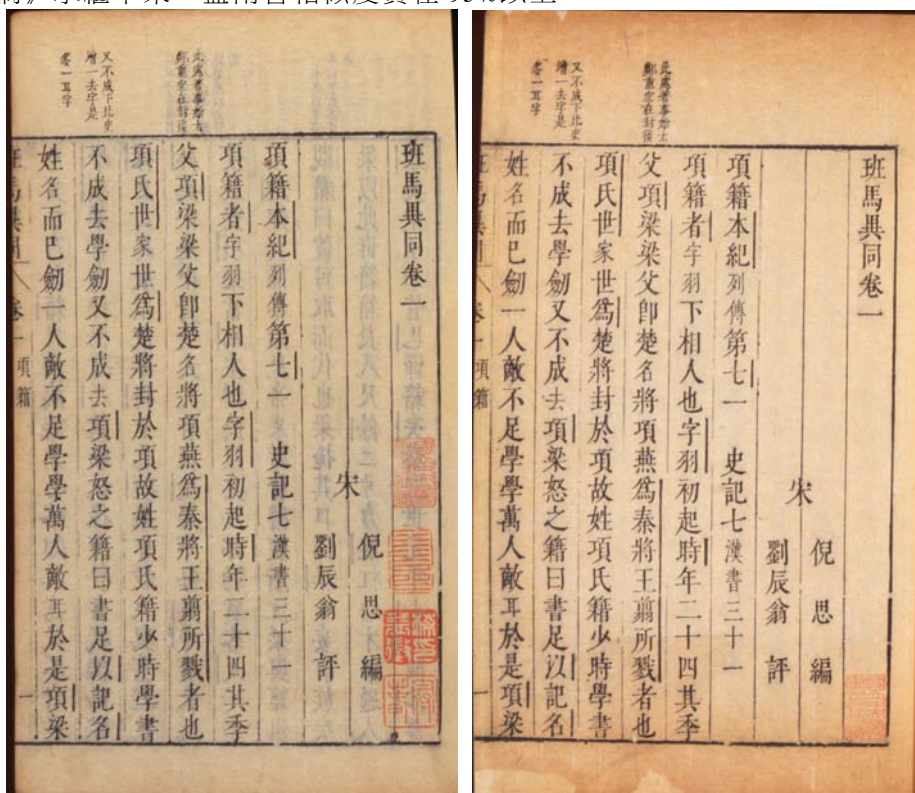 兩書相似度實在 95%以上
又不成下比史
增一去字是
多一耳字
班馬異同卷一
宋
倪思編
劉辰翁評
項籍本紀列傳第七一 史記七漢書三十一
項籍者字羽下相人也字羽初起時年二十四其季
父項梁梁父即楚名將項燕爲秦將王翦所戮者也
項氏世家世爲楚將封於項故姓項氏籍少時學書
不成去學劒又不成去項梁怒之籍曰書足以記名
姓名而已劒一人敵不足學學萬人敵耳於是項梁
卷一 項籍 一
又不成下比史
增一去字是
多一耳字
班馬異同卷一
宋
倪思編
劉辰翁評
項籍本紀列傳第七一 史記七漢書三十一
項籍者字羽下相人也字羽初起時年二十四其季
父項梁梁父即楚名將項燕爲秦將王翦所戮者也
項氏世家世爲楚將封於項故姓項氏籍少時學書
不成去學劒又不成去項梁怒之籍曰書足以記名
姓名而已劒一人敵不足學學萬人敵耳於是項梁
卷一 項籍 一